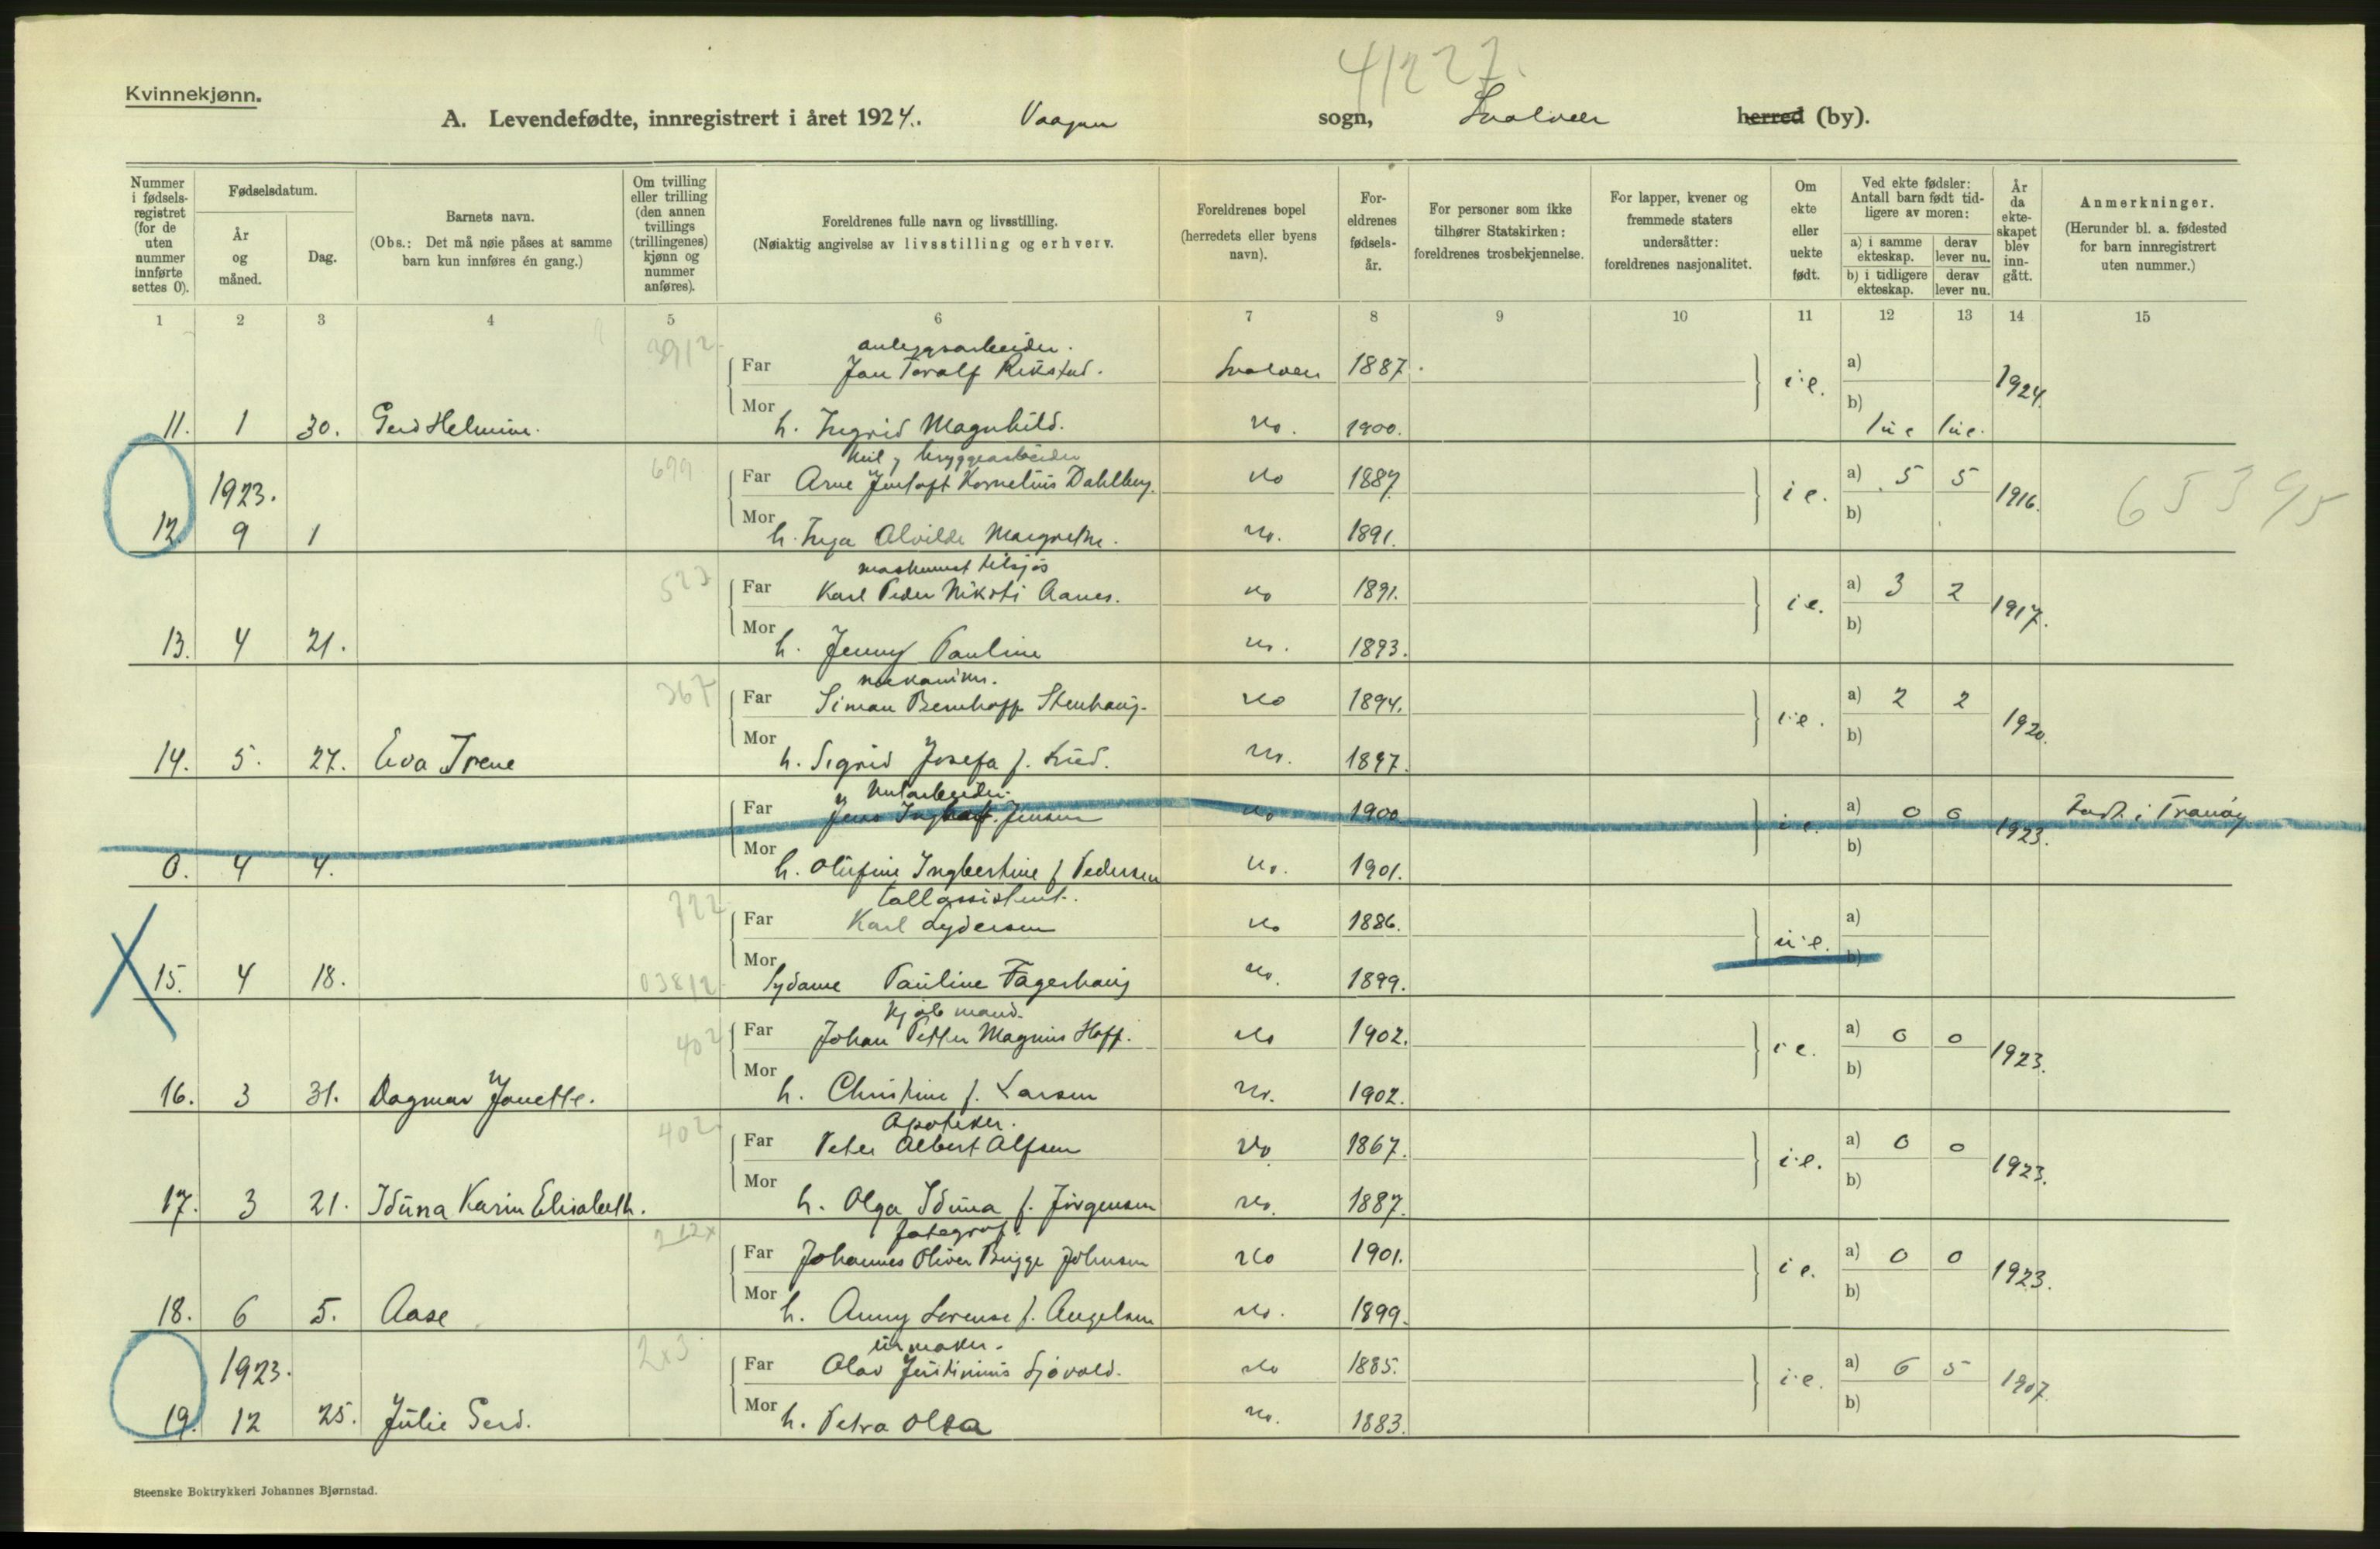 41227.
Kvinnekjønn.
A. Levendefødte, innregistrert i året 1924. Vaagan sogn, Svolvær herred (by).
Nummer i fødsels-registret (for de uten nummer innførte settes 0).
Fødselsdatum.
År og måned.
Dag.
Barnets navn.
(Obs.: Det må nøie påses at samme barn kun innføres én gang.)
Om tvilling eller trilling (den annen tvillings (trillingenes) kjønn og nummer anføres).
Foreldrenes fulle navn og livsstilling.
(Nøiaktig angivelse av livsstilling og erhverv.
Foreldrenes bopel (herredets eller byens navn).
For-eldrenes fødsels-år.
For personer som ikke tilhører Statskirken: foreldrenes trosbekjennelse.
For lapper, kvener og fremmede staters undersåtter: foreldrenes nasjonalitet.
Om ekte eller uekte født.
Ved ekte fødsler: Antall barn født tid-ligere av moren:
a) i samme ekteskap.
derav lever nu.
b) i tidligere ekteskap.
derav lever nu.
År da ekte-skapet blev inn-gått.
Anmerkninger.
(Herunder bl. a. fødested for barn innregistrert uten nummer.)
1 2 3 4 5 6 7 8 9 10 11 12 13 14 15
anleggsarbeider.
Far Jan Toralf Rikstad. Svolvær 1887. i.e. a) 1924.
Mor b)
11. 1 30. Gerd Helmine. h. Ingrid Magnhild. do. 1900. 
bryggearbeider
1923. Far Arne Kornelius Dahlberg. do 1887 i e. a) 5 5 1916. 65395
12. 9 1 Mor h. Inga Alvilde Margrethe. do. 1891. b)
maskinist tilsjøs
Far Karl Peder Aanes. do 1891. i e. a) 3 2 1917.
13. 4 21. Mor h. Jenny Pauline do. 1893. b)
367 mekaniker.
Far Simon Bernhoff Stenhaug. do 1894. i.e. a) 2 2 1920.
14. 5. 27. Eva Irene Mor h. Sigrid Josefa f. do. 1897. b)
Far Jens Jensen do 1900 i e. a) 0 0 1923. født i Tranøy
0. 4 4. Mor h. Olufine Ingbertine f Pedersen do. 1901. b)
722 Tollassistent.
Far Karl Lydersen do 1886. u.e. a)
15. 4 18. Mor Sydame Pauline Fagerhaug do. 1899. b)
402 Kjøbmand.
Far Johan Petter Magnus Hoff. do 1902. i e. a) 0 0 1923.
16. 3 31. Dagmar Jonette. Mor h. Christine f. Larsen do. 1902. b)
402 Apoteker.
Far Peter Albert Alfsen do 1867. i.e. a) 0 0 1923.
17. 3 21. Iduna Karin Elisabeth. Mor h. Olga Iduna f. Jørgensen do. 1887. b)
fotograf.
Far Johannes Oliver Brigge Johnsen do 1901. i e. a) 0 0 1923.
18. 6 5. Aase Mor h. Anny Lorense f. Angelsen do. 1899. b)
urmaker.
1923. Far Olav Justinius Sjøvold. do 1885. i.e. a) 6 5 1907.
19. 12 25. Julie Gerd. Mor h. Petra Olea do. 1883. b)
Steenske Boktrykkeri Johannes Bjørnstad.